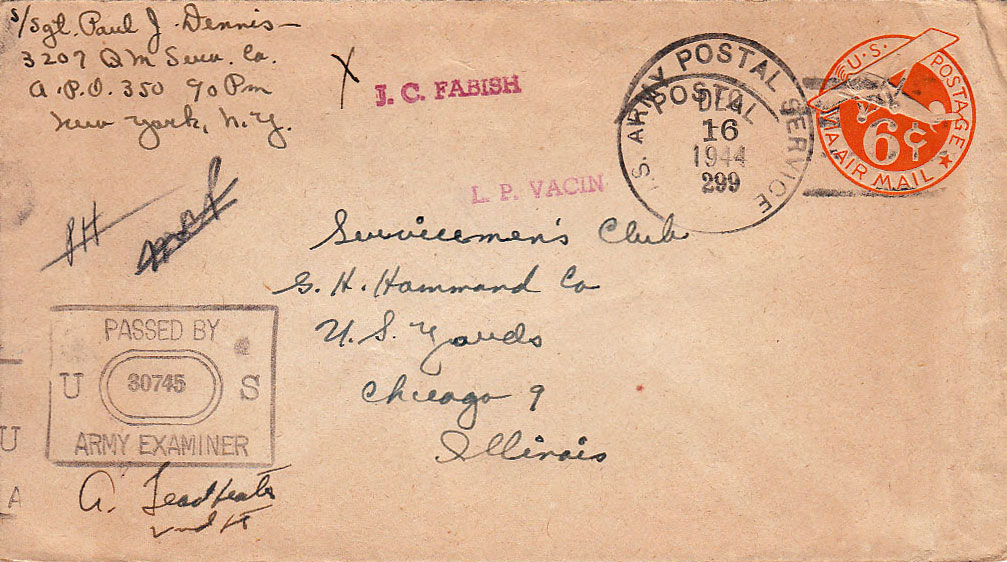 S/Sgt. Paul J. Dennis
3207 QM Serv. Co.
A.P.O. 350 % P.m
New York, N.Y.
X
J. C. FABISH
L. P. VACIN
U.S. ARMY POSTAL SERVICE
POSTAL
16
1944
299
U.S. POSTAGE
VIA AIR MAIL
6¢
PH
Servicemen's Club
G. H. Hammond Co
U.S. Yards
Chicago 9
Illinois
PASSED BY
U 30745 S
ARMY EXAMINER
U
A
A.